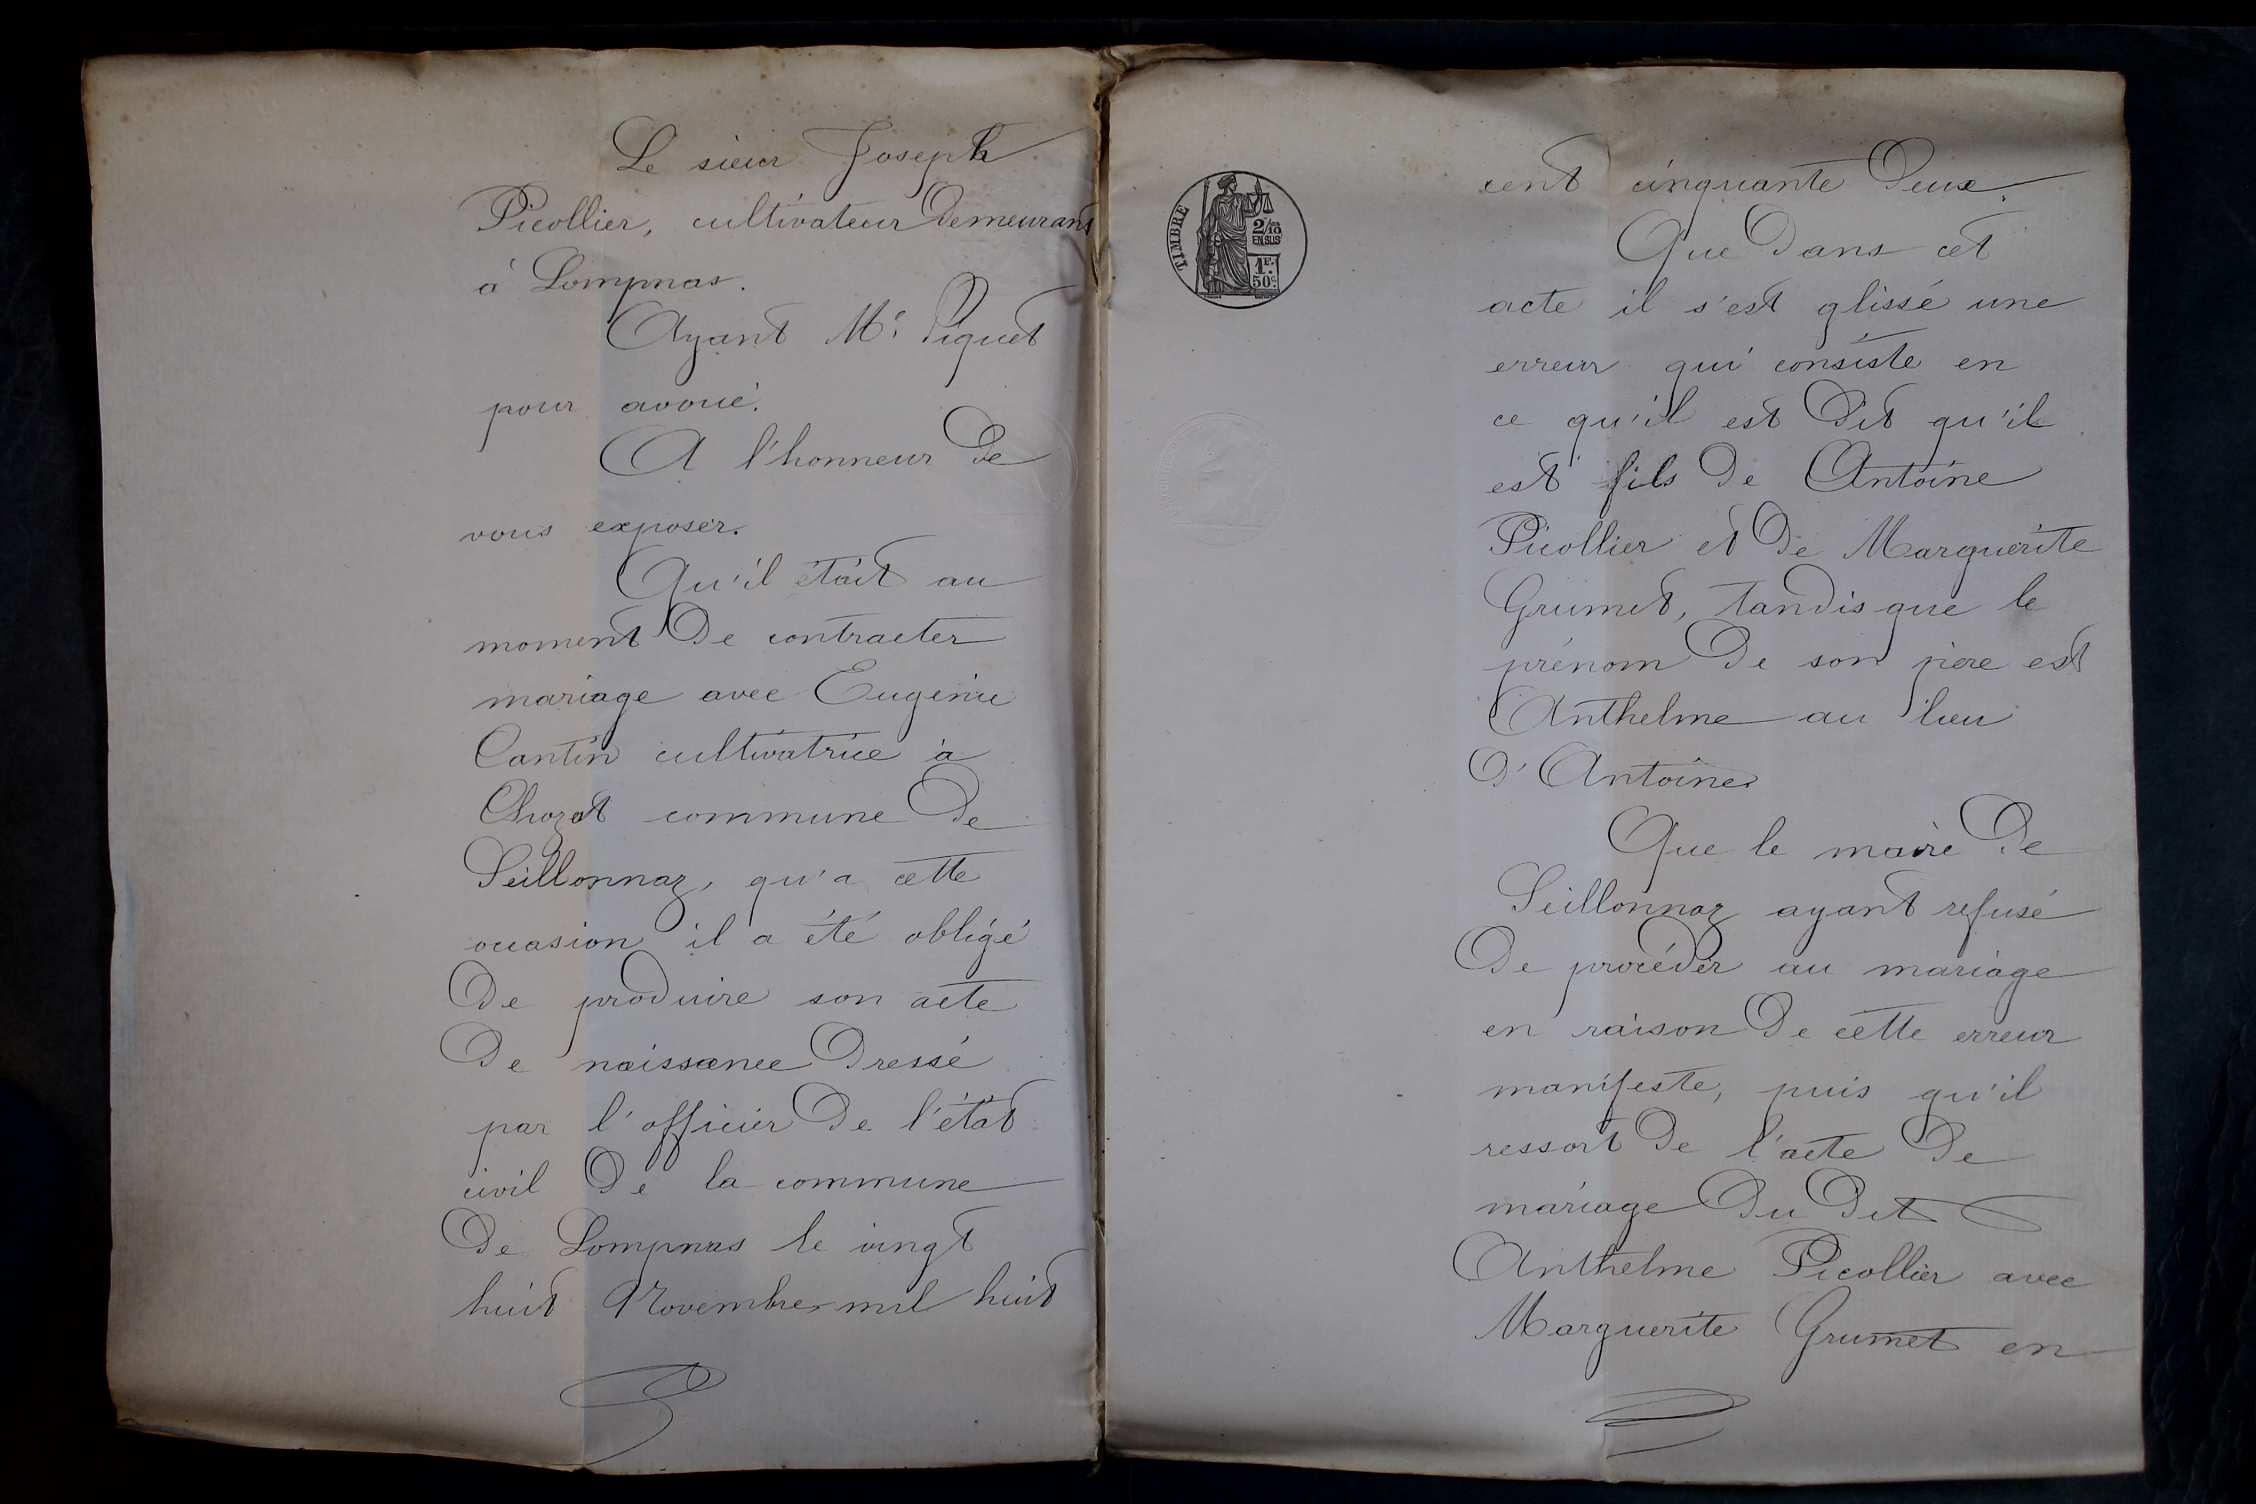 Le sieur Joseph
Picollier, cultivateur demeurant
à Lompnas.
Ayant Me. Piquet
pour avoué.
A l'honneur de
vous exposer.
Qu'il était au
moment de contracter
mariage avec Eugénie
Cantin cultivatrice à
Chozat commune de
Seillonnaz, qu'a cette
occasion il a été obligé
de produire son acte
de naissance dressé
par l'officier de l'état
civil de la commune
de Lompnas le vingt
huit Novembre mil huit
TIMBRE
2/10
EN SUS
1F.
50c.
cent cinquante deux.
Que dans cet
acte il s'est glissé une
erreur qui consiste en
ce qu'il est dit qu'il
est fils de Antoine
Picollier et de Marguerite
Grumet, tandis que le
prénom de son père est
Anthelme au lieu
d'Antoine
Que le maire de
Seillonnaz ayant refusé
de procéder au mariage
en raison de cette erreur
manifeste, puis qu'il
ressort de l'acte de
mariage du dit
Anthelme Picollier avec
Marguerite Grumet en